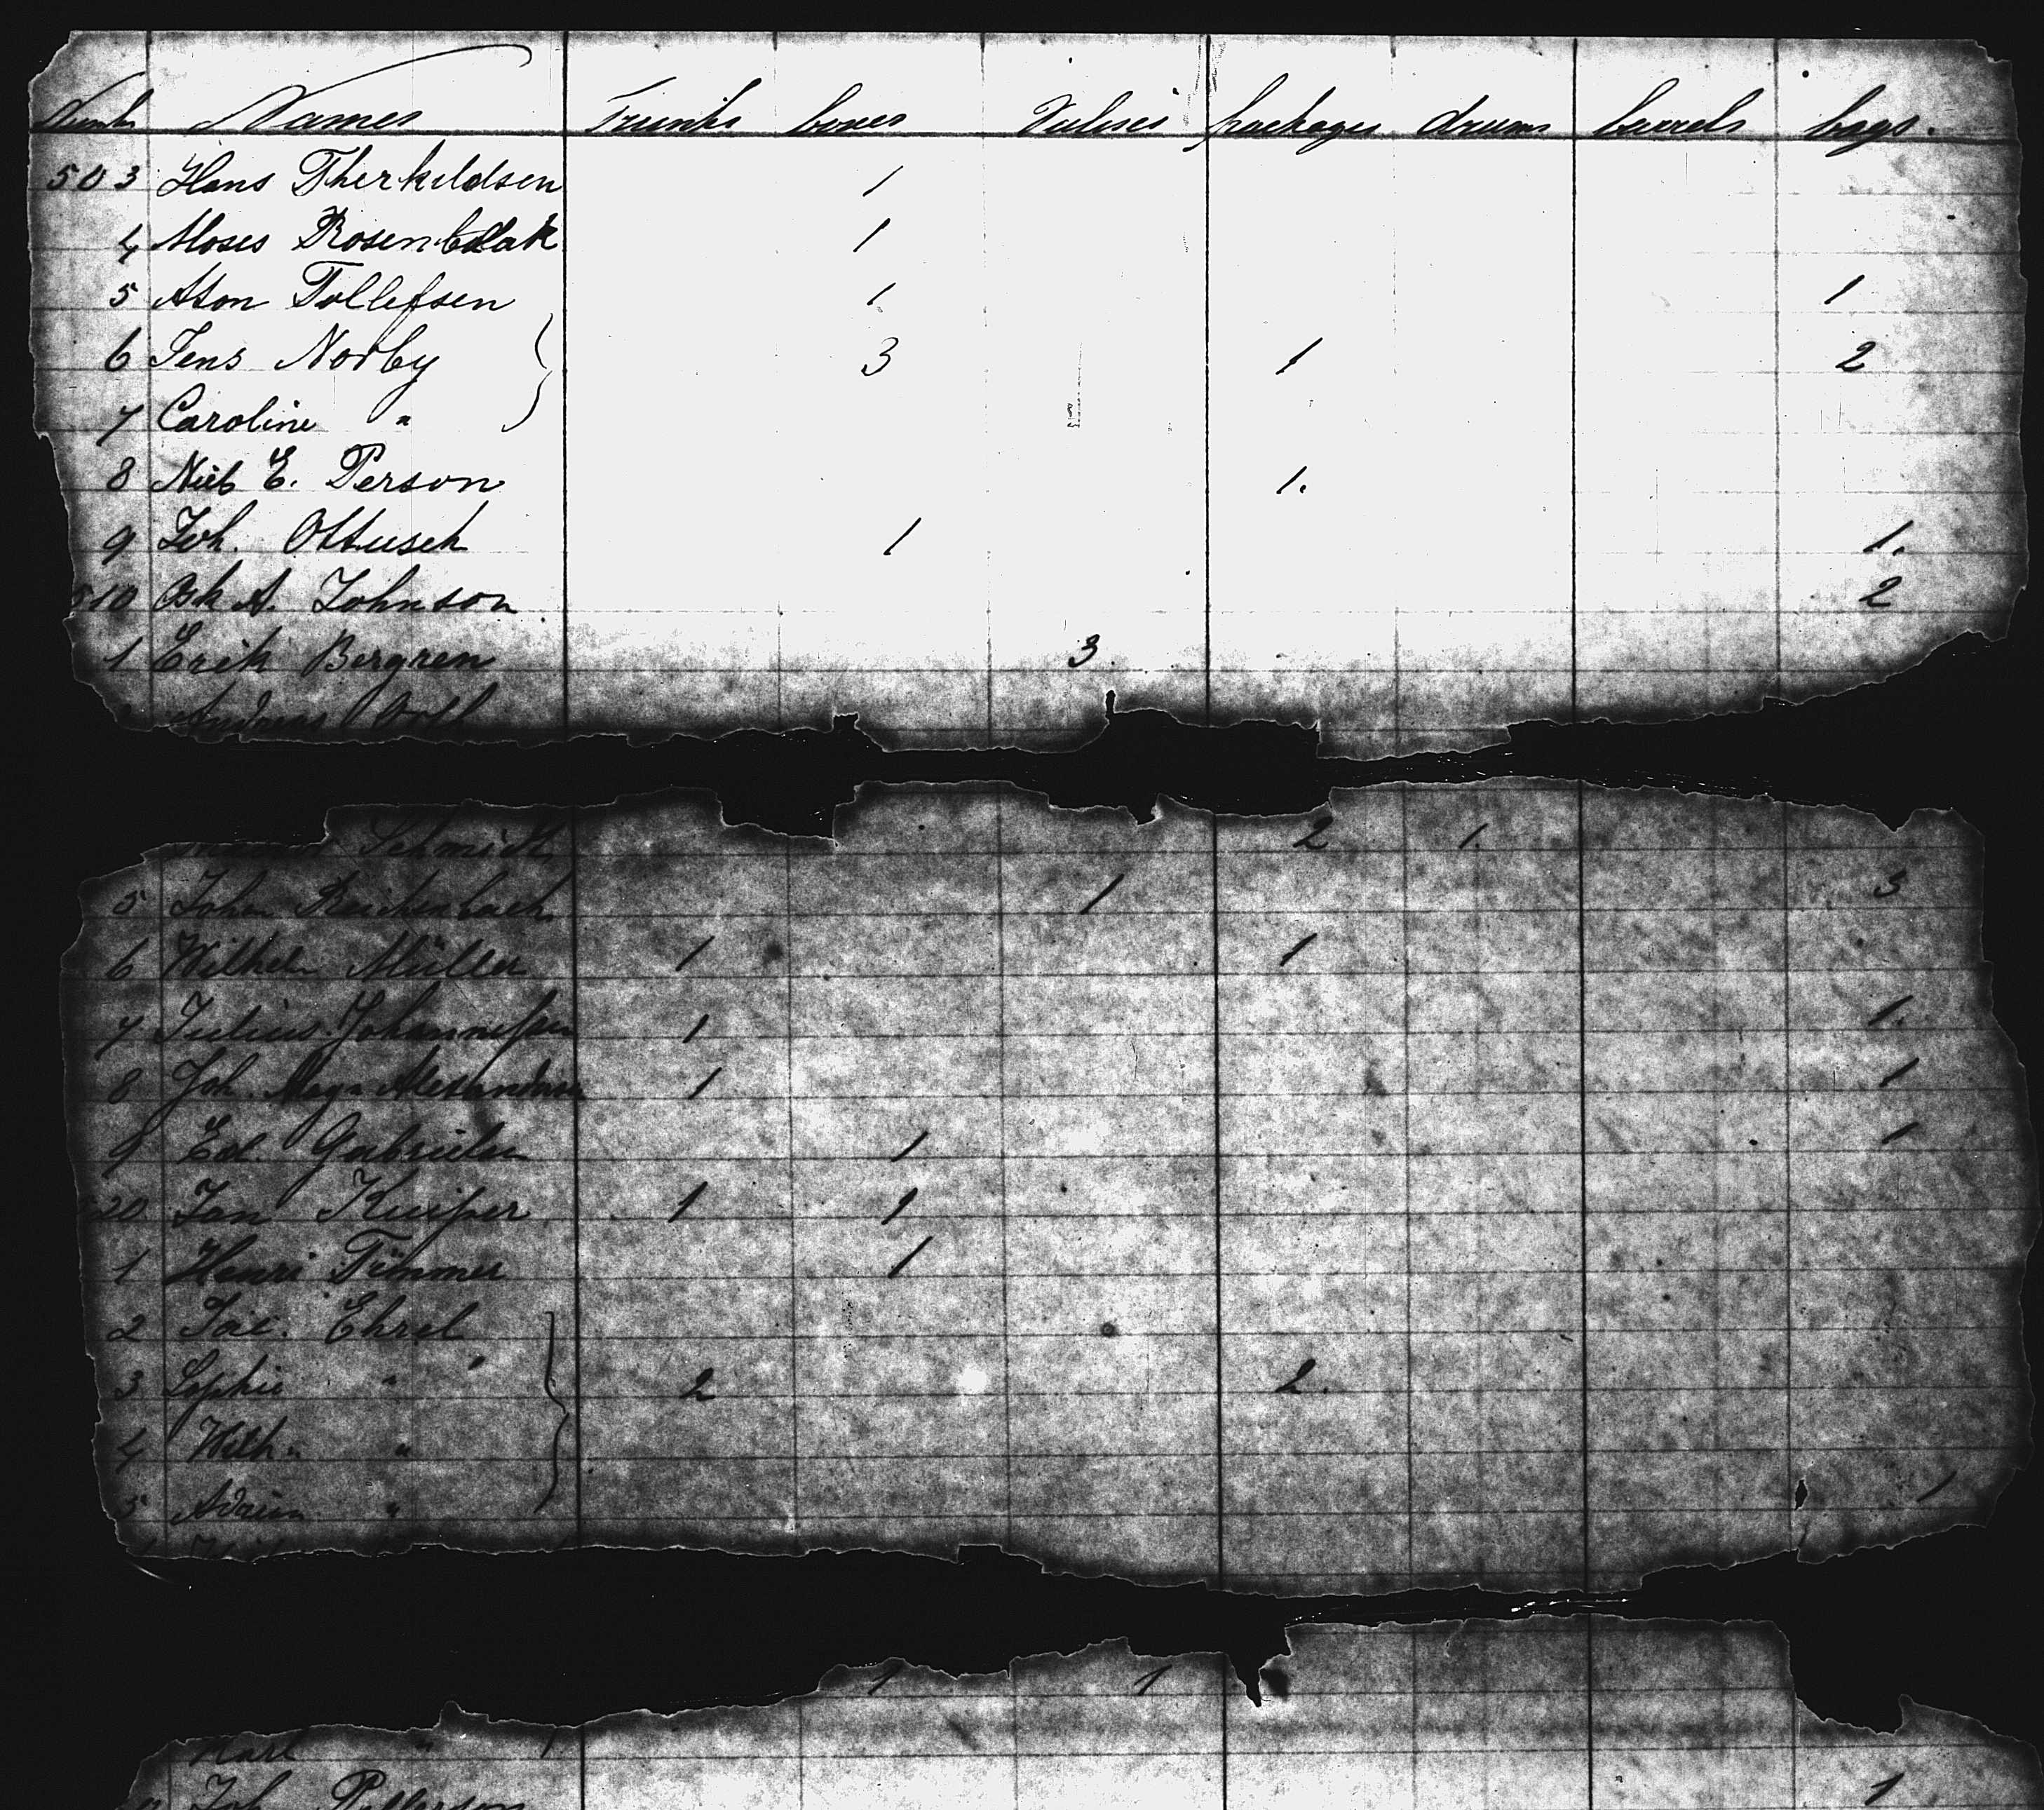 Number Names Trunks boxes Valises packages drums barrels bags.
503 Hans Therkildsen 1
4 Moses Rosenblak 1
5 Aton Tollefsen 1 1
6 Jens Norby 3 1 2
7 Caroline "
8 Niels E. Person 1.
9 Joh. Ottusch 1 1.
510 A. Johnson 2
1 Erik Bergren 3.
Andreas
Schmidt 2 1.
5 John Reichenbach 1 3
6 Wilhelm Müller 1 1
7 Julius Johannessen 1 1.
8 Joh. Alexander 1 1
9 Ed. Gabrielsen 1 1
20 Jan Kuiper 1 1
1 Henri Timmer 1
2 Jac. Ehrel
3 Sophie " 2 2.
4 Wilh. "
5 Adrian " 1
1 1
Karl "
Joh. Petterson 1